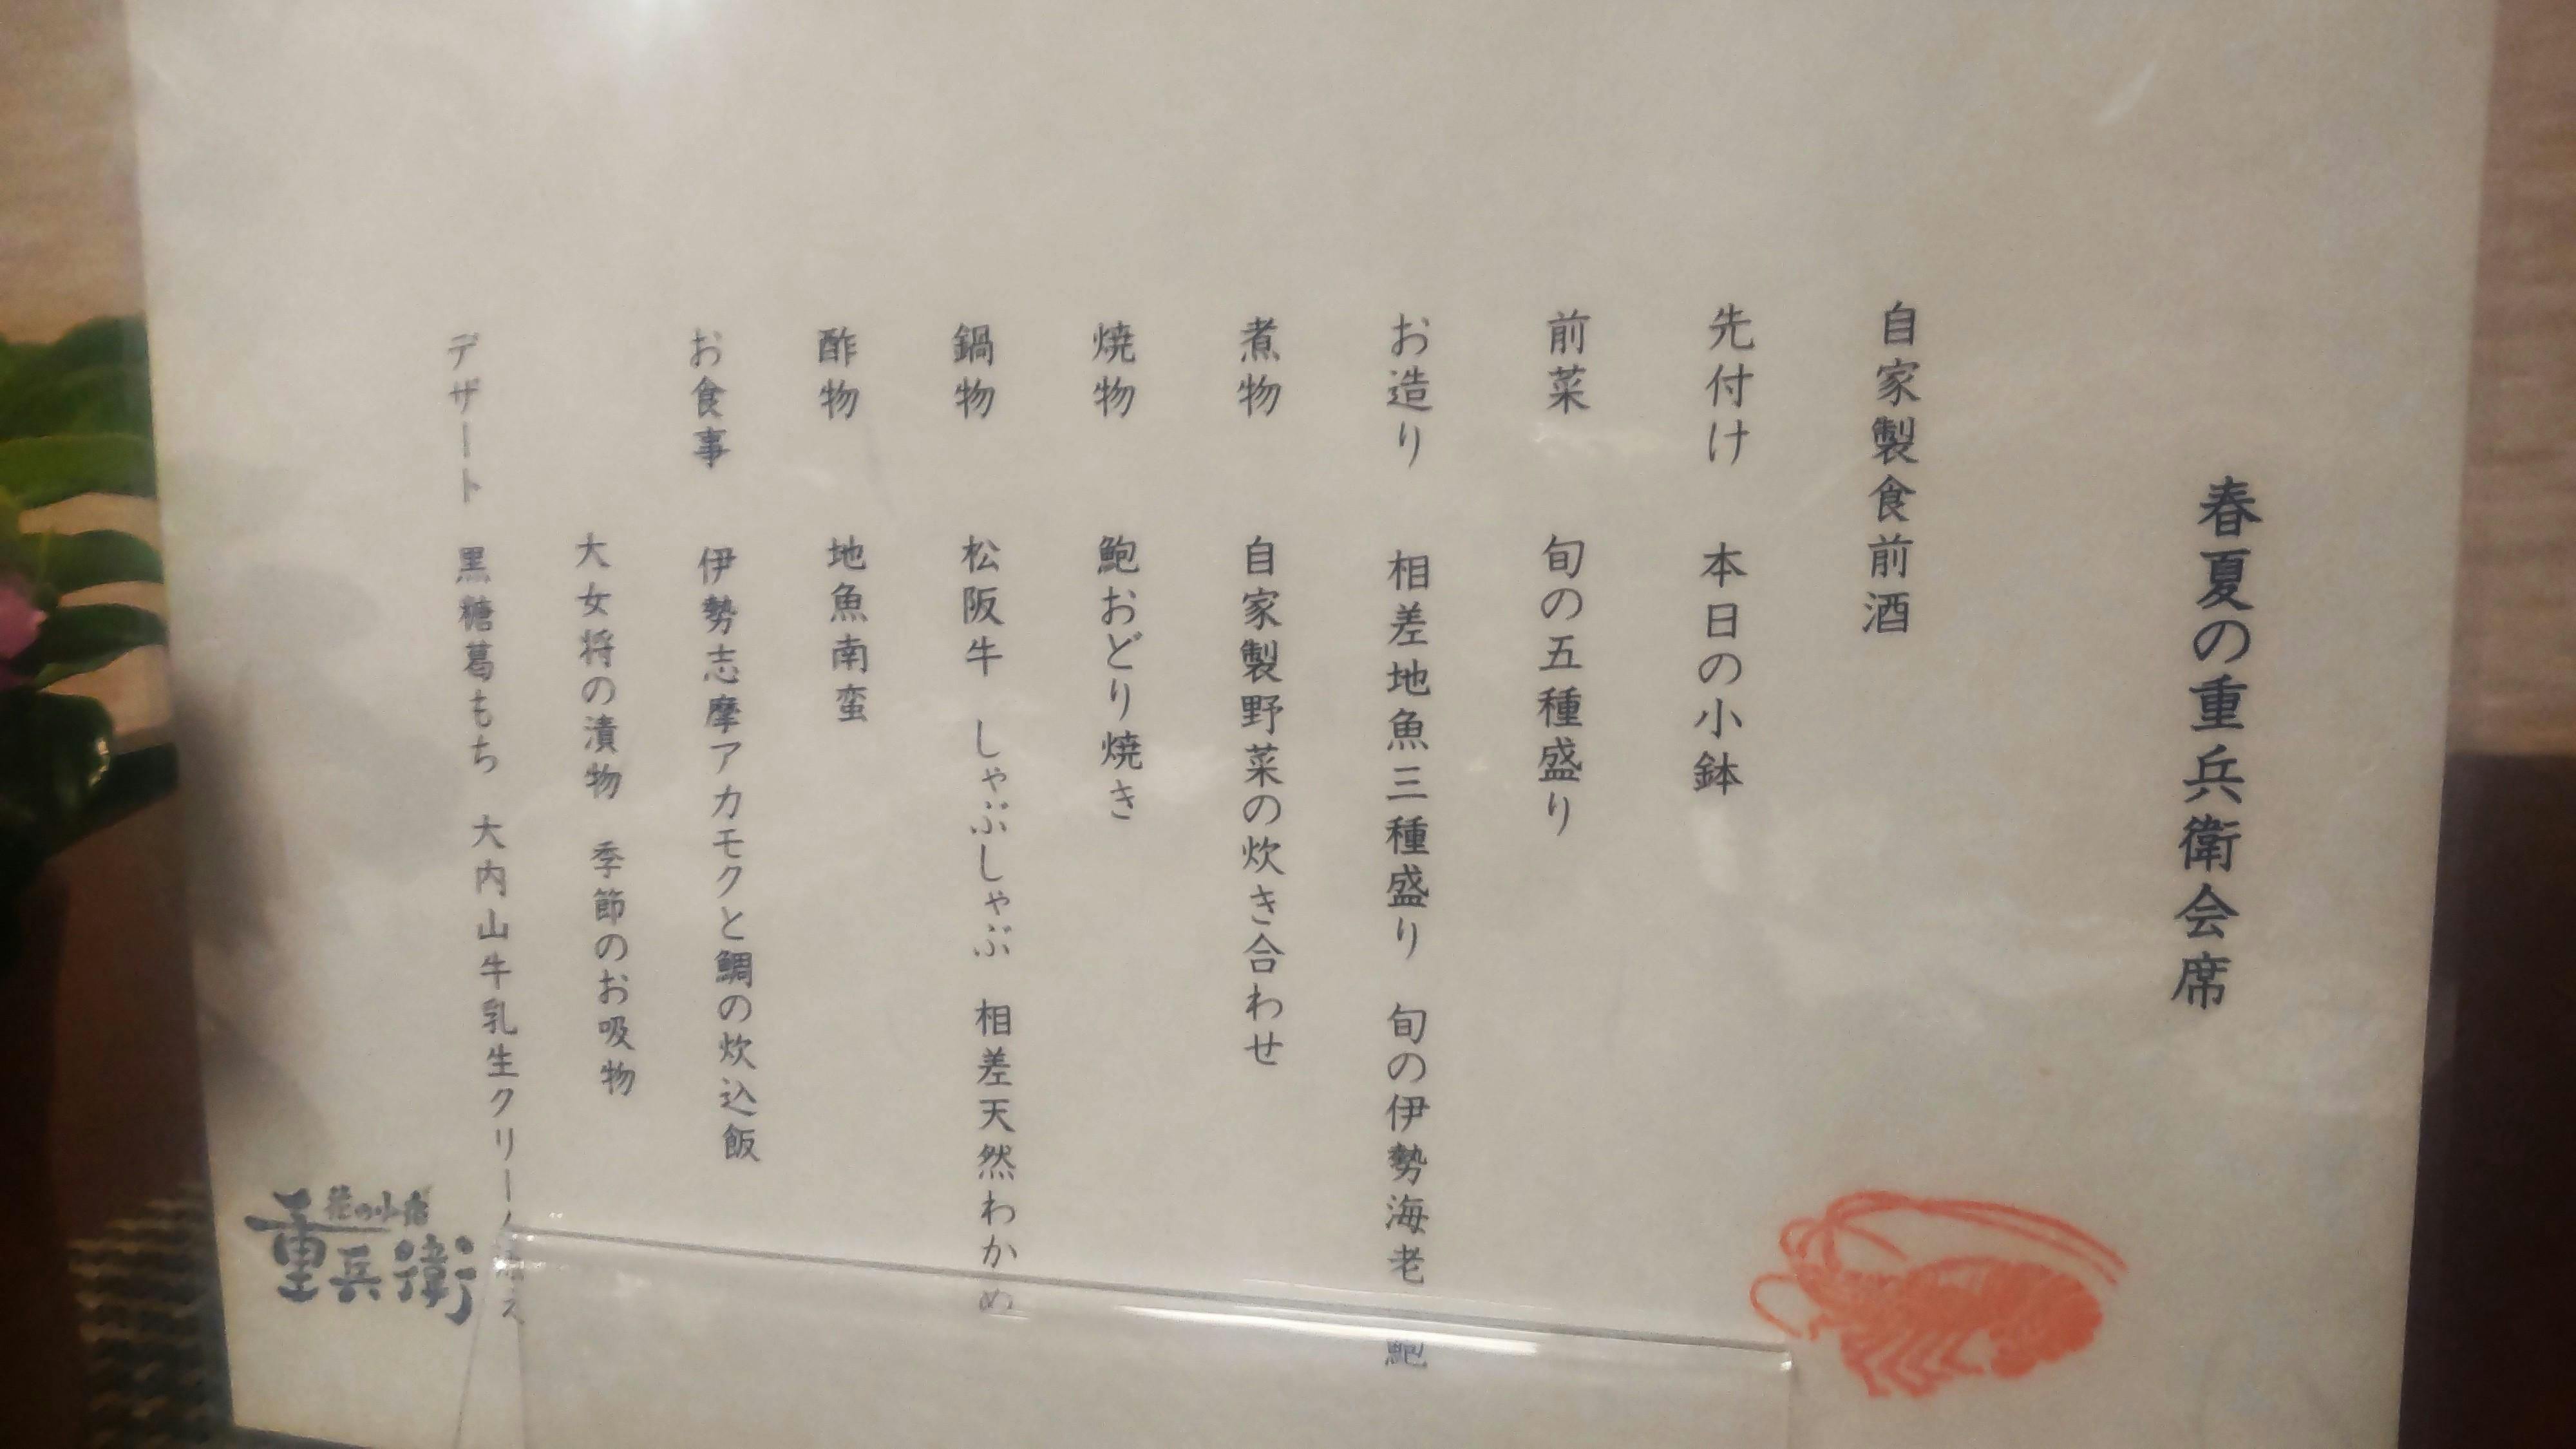 春夏の重兵衛会席
自家製食前酒
先付け 本日の小鉢
前菜 旬の五種盛り
お造り 相差地魚三種盛り 旬の伊勢海老 鮑
煮物 自家製野菜の炊き合わせ
焼物 鮑おどり焼き
鍋物 松阪牛 しゃぶしゃぶ 相差天然わかめ
酢物 地魚南蛮
お食事 伊勢志摩アカモクと鯛の炊込飯
大女将の漬物 季節のお吸物
デザート 黒糖葛もち 大内山牛乳生クリーム添え
花の小宿
重兵衛